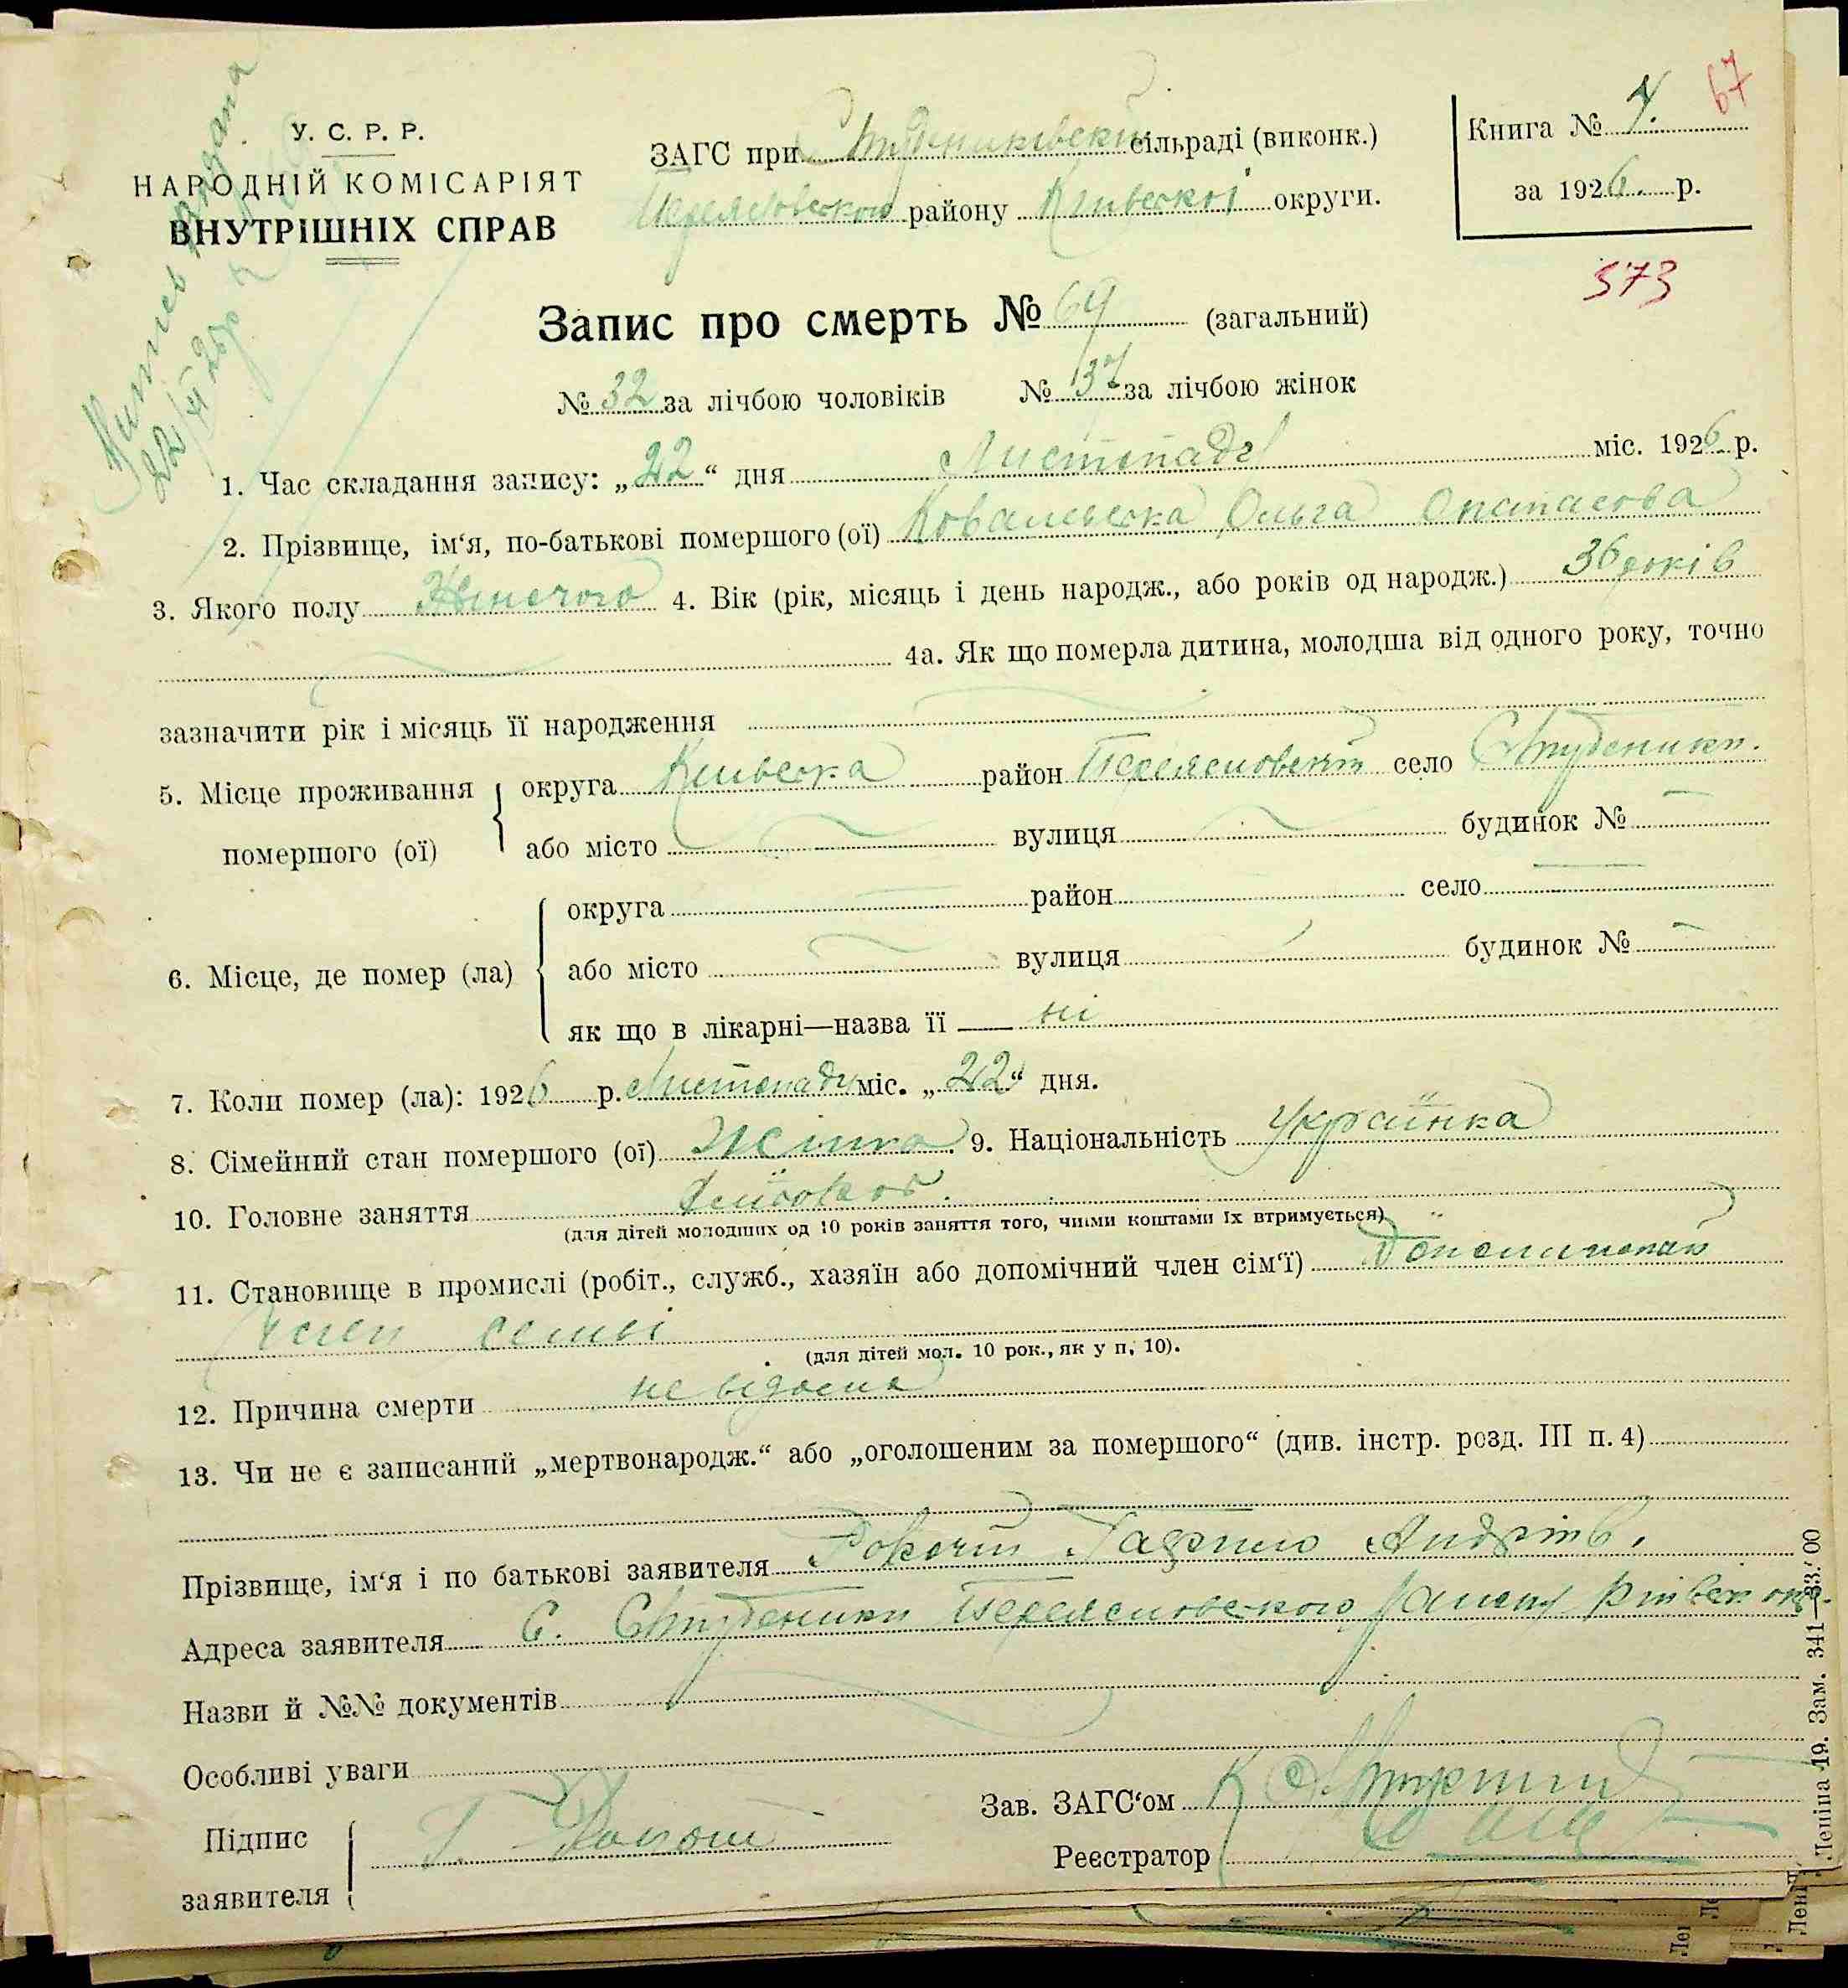 Витяг видана
22/XI 26 р
67
У. С. Р. Р.
НАРОДНІЙ КОМІСАРІЯТ
ВНУТРІШНІХ СПРАВ
ЗАГС при Студениківській сільраді (виконк.)
Переяславского району Київської округи.
Книга №
за 1926 р.
573
Запис про смерть № 69 (загальний)
№ 32 за лічбою чоловіків № 37 за лічбою жінок
1. Час складання запису: „22“ дня Листопада міс. 1926 р.
2. Прізвище, ім‘я, по-батькові помершого (ої) Ковальська Ольга Опанасова
3. Якого полу Жіночого 4. Вік (рік, місяць і день народж., або років од народж.) 36 років
4а. Як що померла дитина, молодша від одного року, точно
зазначити рік і місяць її народження
5. Місце проживання помершого (ої) округа Київська район Переяславський село Студеники.
або місто вулиця будинок №
6. Місце, де помер (ла) округа район село
або місто вулиця будинок №
як що в лікарні—назва її ні
7. Коли помер (ла): 1926 р. Листопаду міс. „22“ дня.
8. Сімейний стан помершого (ої) Жінка 9. Національність Українка
10. Головне заняття
(для дітей молодших од 10 років заняття того, чиїми коштами їх втримується)
11. Становище в промислі (робіт., служб., хазяїн або допомічний член сім‘ї)
член семьї
(для дітей мол. 10 рок., як у п. 10).
12. Причина смерти не відома
13. Чи не є записаний „мертвонародж.“ або „оголошеним за помершого“ (див. інстр. розд. III п. 4)
Прізвище, ім‘я і по батькові заявителя Гаврило Андріїв.
Адреса заявителя С. Студеники Переяславского району Київськ окр.
Назви й №№ документів
Особливі уваги
Зав. ЗАГС‘ом
Підпис заявителя Г.
Реєстратор
Леніна 19. Зам. 341—33.' 00